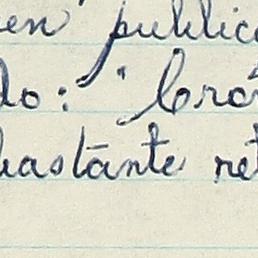 en public
do: " Cró
bastante ret